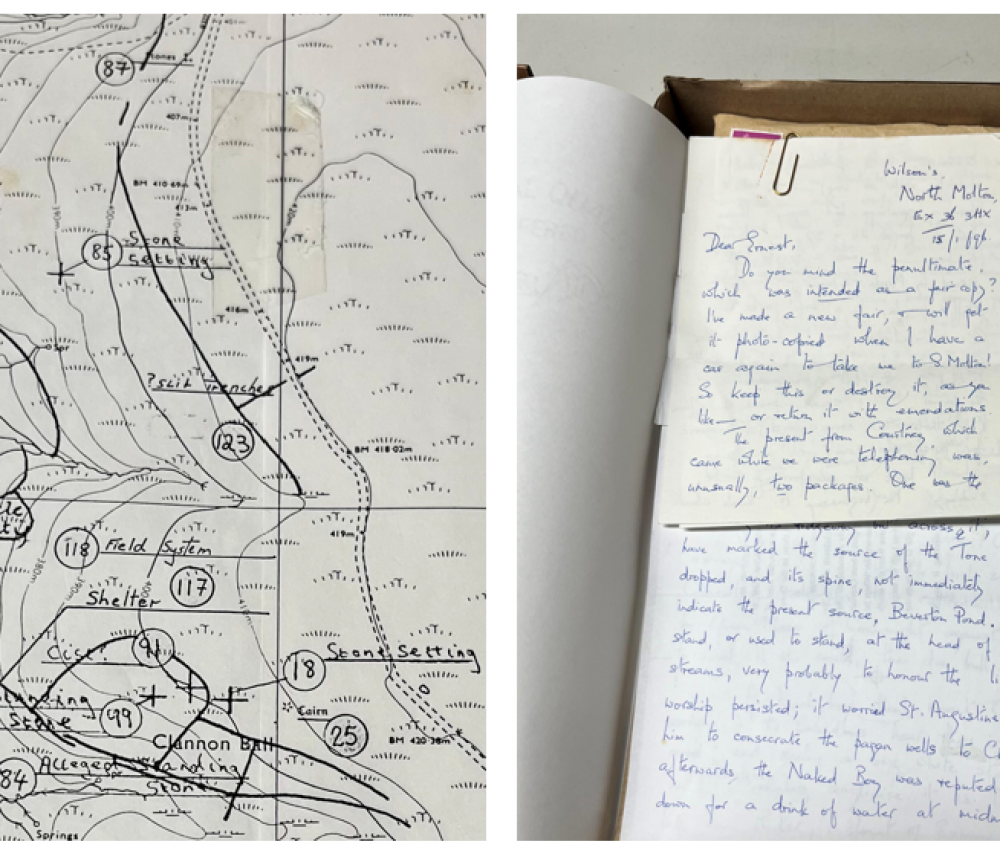 87
Stones
407m
BM 410·69m
413m
390m
400m
410m
420m
85
Stone
Setting
416m
Spr
419m
? Slit Trenches
123
BM 418·02m
419m
118
Field System
117
380m
390m
400m
Shelter
Cist?
91
18
Stone Setting
Standing
Stone
99
Cairn
25
Clannon Ball
BM 420·38m
84
Alleged Standing
Stone
Springs
Wilson's,
North Molton,
EX 36 3HX
15/1/96
Dear Ernest,
Do you mind the penultimate,
which was intended as a fair copy?
I've made a new fair, & will get
it photo-copied when I have a
car again to take me to S. Molton!
So keep this or destroy it, as you
like — or return it with emendations.
The present from Courtney which
came while we were telephoning was,
unusually, two packages. One was the
across it,
have marked the source of the Tone
dropped, and its spine, not immediately
indicate the present source, Beverton Pond.
stand, or used to stand, at the head of
streams, very probably to honour the
worship persisted; it worried St. Augustine
him to consecrate the pagan wells to
afterwards, the Naked Boy was reputed
down for a drink of water at